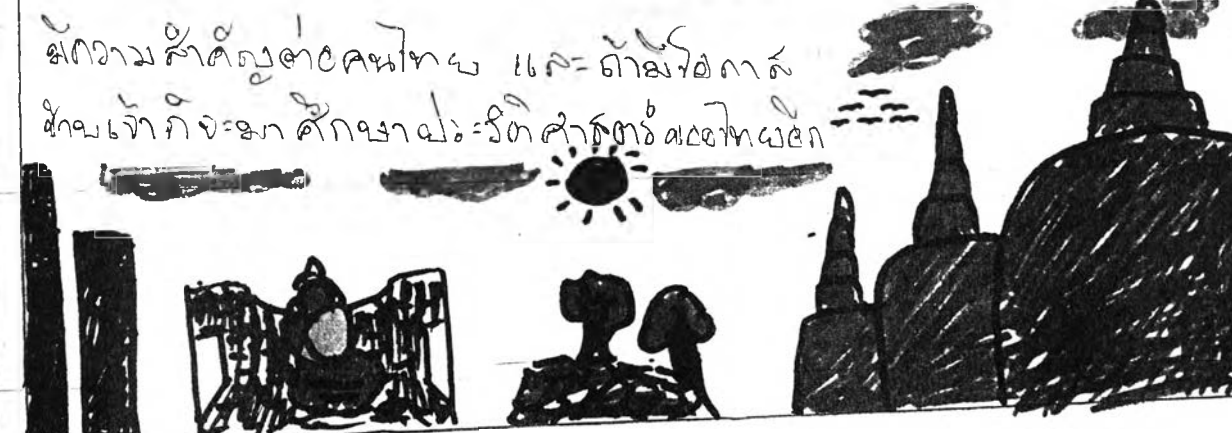 มีความสำคัญต่อคนไทย และถ้ามีโอกาส
ข้าพเจ้าก็จะมาศึกษาประวัติศาสตร์ของไทยอีก